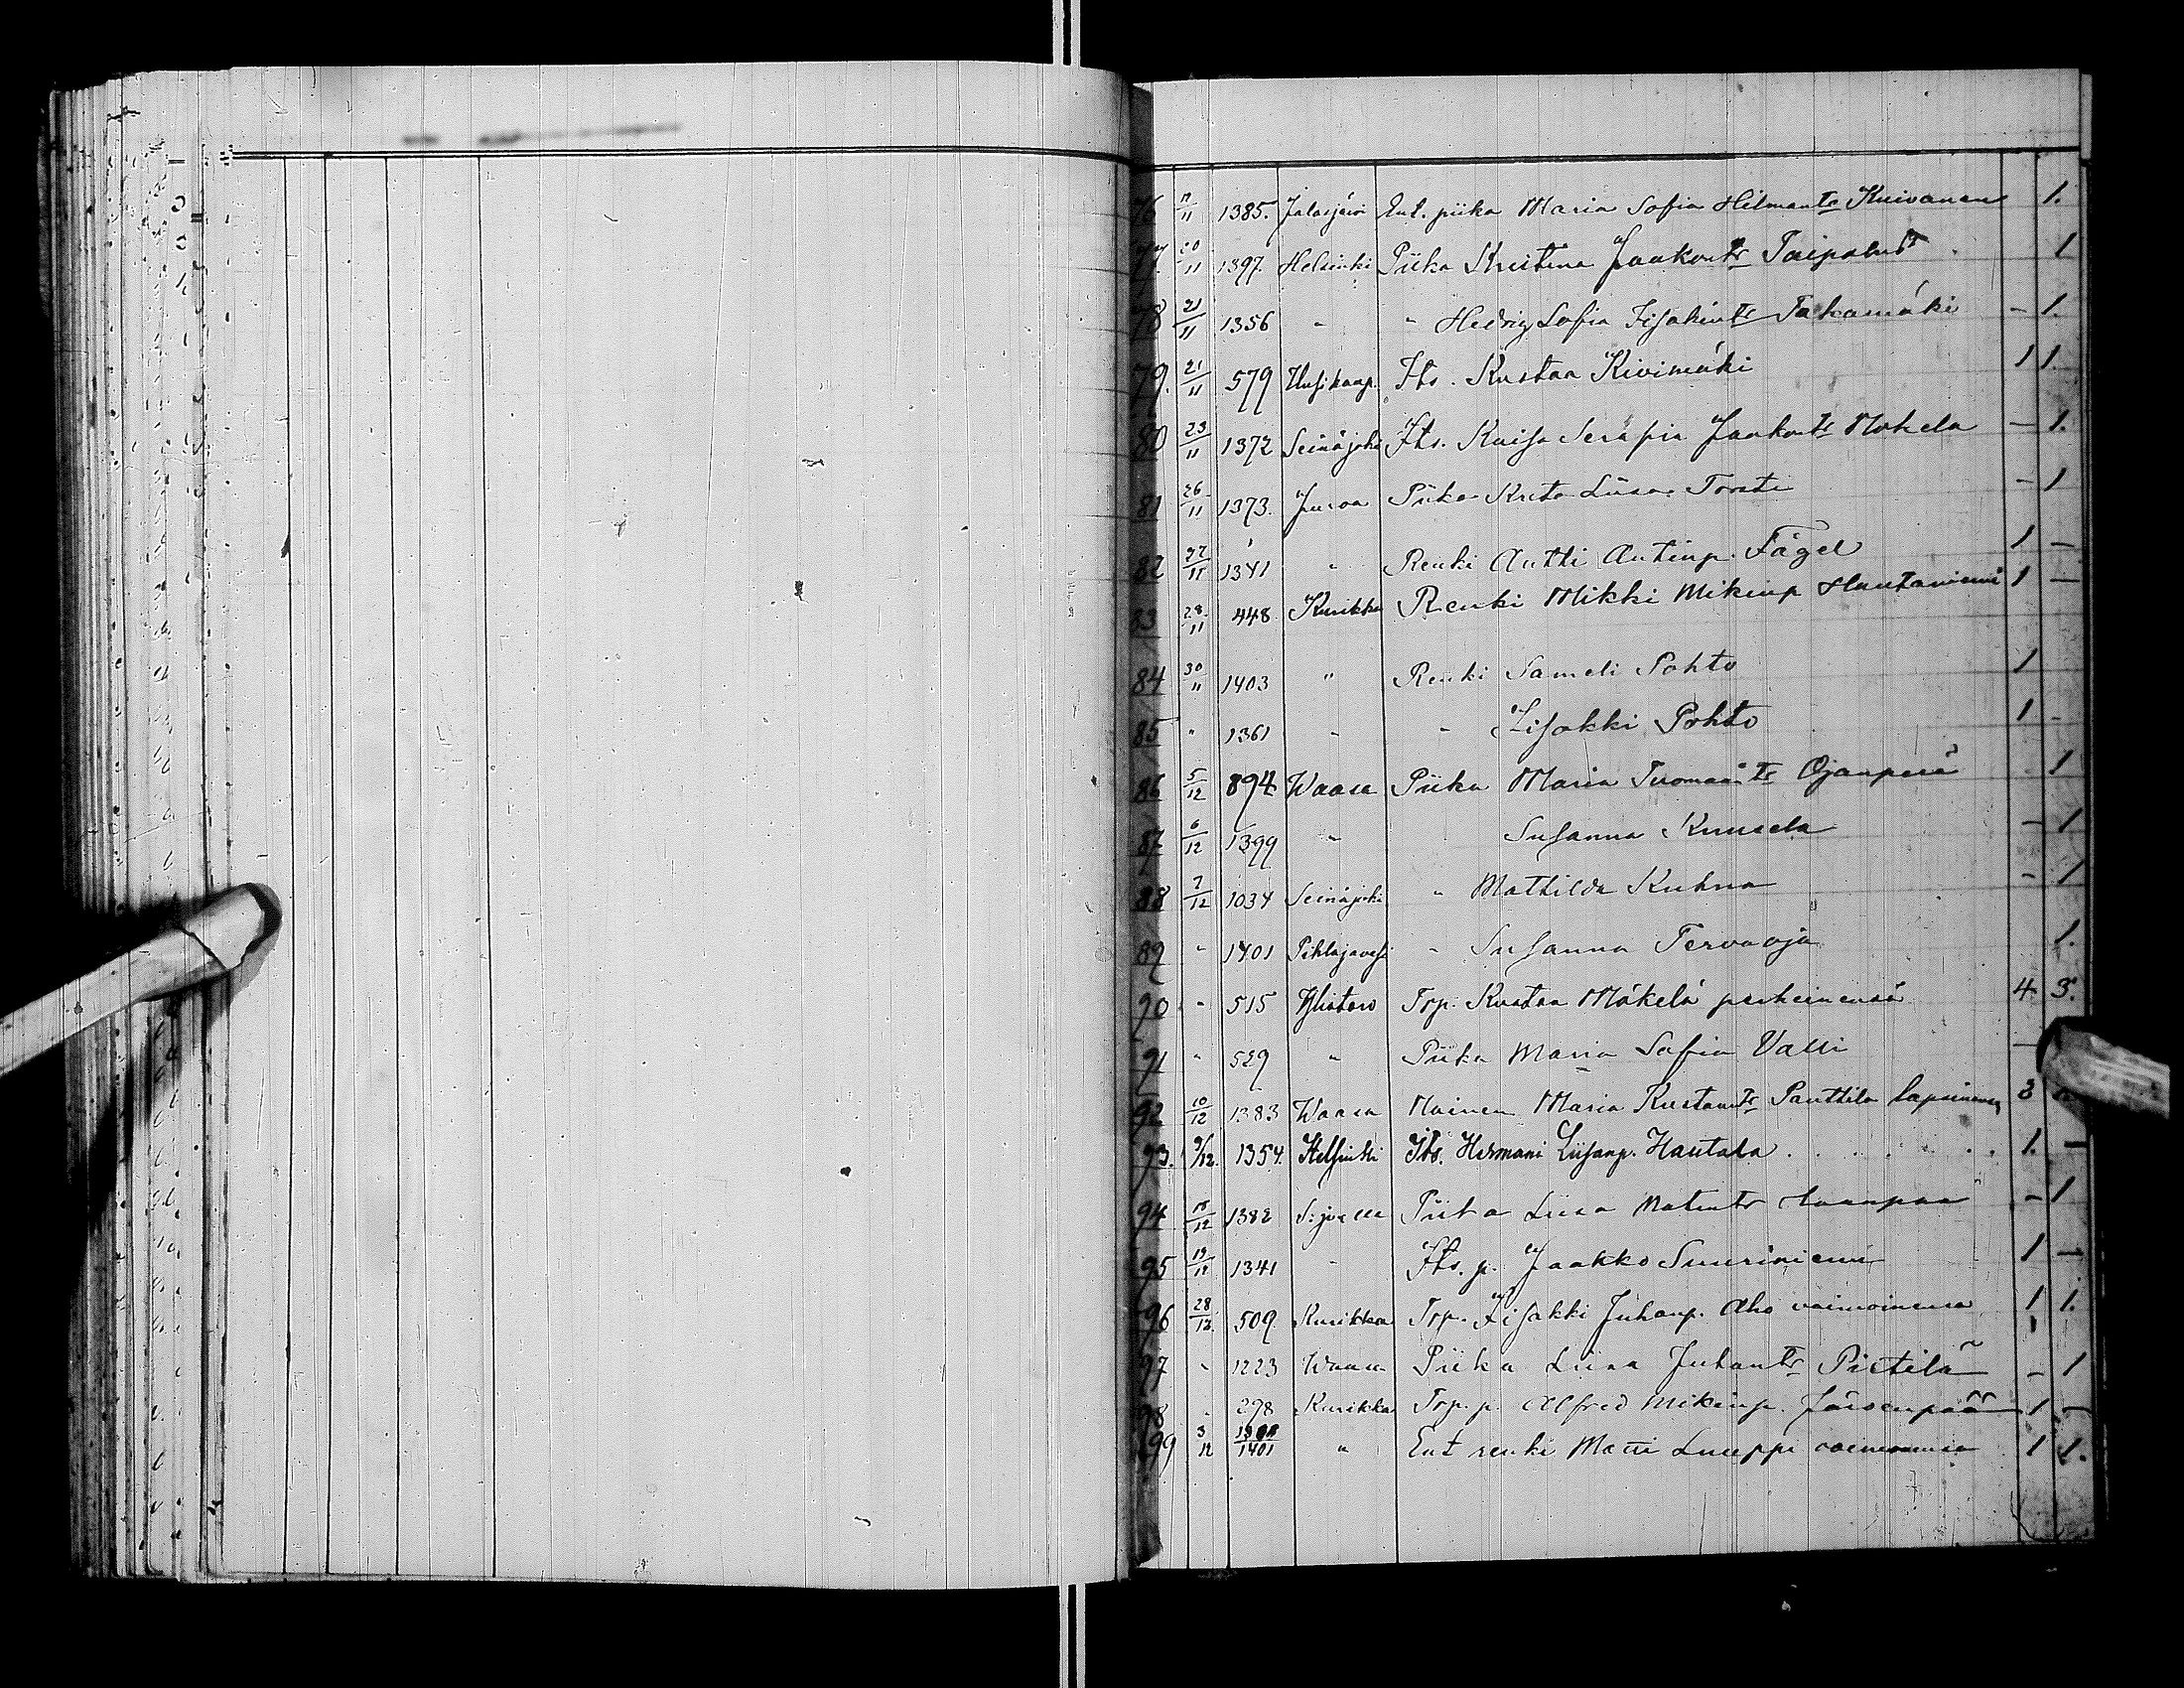 76 17/11 1385. Jalasjärvi Ent. piika Maria Sofia Hilmantr Kuivanen 1.
77. 20/11 1397. Helsinki Piika Kristina Jaakontr Taipalus 1
78 21/11 1356 " " Hedvig Sofia Iisakintr Takamäki - 1.
79. 21/11 579 Uusikaup. Its. Kustaa Kivimäki 1 1.
80 23/11 1372 Seinäjoki Its. Kaisa Serafia Jaakontr - 1.
81 26/11 1373. Jurva Piika Kreta Liisa Torsti - 1
82 27/11 1341 " Renki Antti Antinp. Fågel 1 -
83 28/11 448 Kurikka Renki Mikki Mikinp Hautaniemi 1 -
84 30/11 1403 " Renki Sameli Pohto 1
85 " 1361 " " Iisakki Pohto 1 -
86 5/12 894 Waasa Piika Maria Tuomaantr Ojanperä 1
87 6/12 1399 " Susanna Kuusela - 1
88 7/12 1034 Seinäjoki " Mathilda Kuhna - 1
89 " 1401 Pihlajavesi " Susanna Tervaoja 1.
90 " 515 Ylistaro Trp. Kustaa Mäkelä perheinensä 4 3.
91 " 529 " Piika Maria Sofia Valli -
92 10/12 1383 Waasa Nainen Maria Kustaantr Panttila lapsinensa 3
93. 9/12. 1354. Helsinki Its. Hermani Liisanp. Hautala . . . . . . 1. -
94 15/12 1382 Piika Liisa Matintr Haanpaa - 1
95 19/12 1341 " Its. p. Jaakko Suuriniemi 1 -
96 28/12. 509. Kurikka Trp. Iisakki Juhanp. Aho vaimoinensa 1 1.
97 " 1223 Waasa Piika Liisa Juhantr Pietilä - 1
98 " 298 Kurikka Trp. p. Alfred Mikinp. Järvenpää 1 -
99 3/12 1401 " Ent renki Matti Luoppi vaimoinensa 1 1.